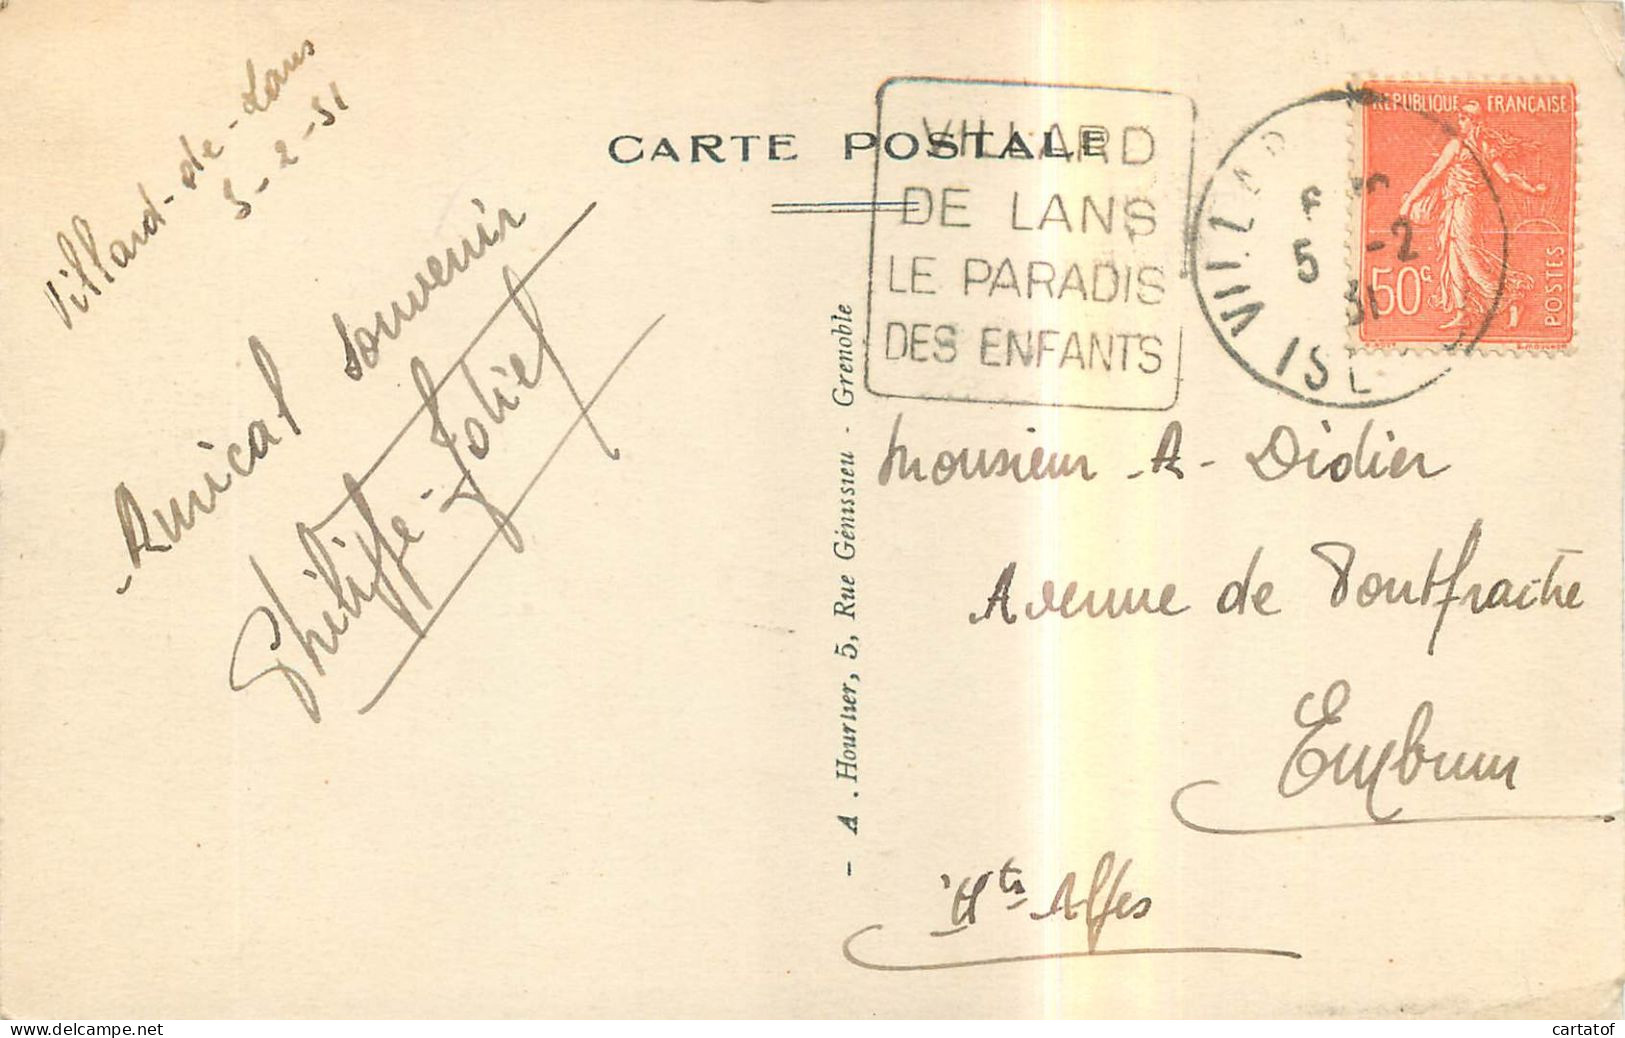 Villard-de-Lans
5-2-31
Amical souvenir
Philippe-Joliet
CARTE POSTALE
VILLARD
DE LANS
LE PARADIS
DES ENFANTS
VILLARD
5 -2
31
ISÈ
REPUBLIQUE FRANÇAISE
50c
POSTES
- A. Hourlier, 5, Rue Génissieu - Grenoble
Monsieur A- Didier
Avenue de Pontfrache
Embrun
Htes Alpes
Delcampe.net
cartatof